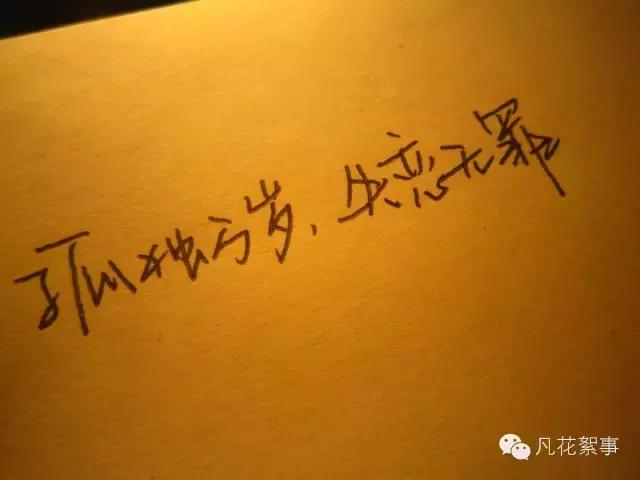 孤独万岁，失恋无罪
凡花絮事